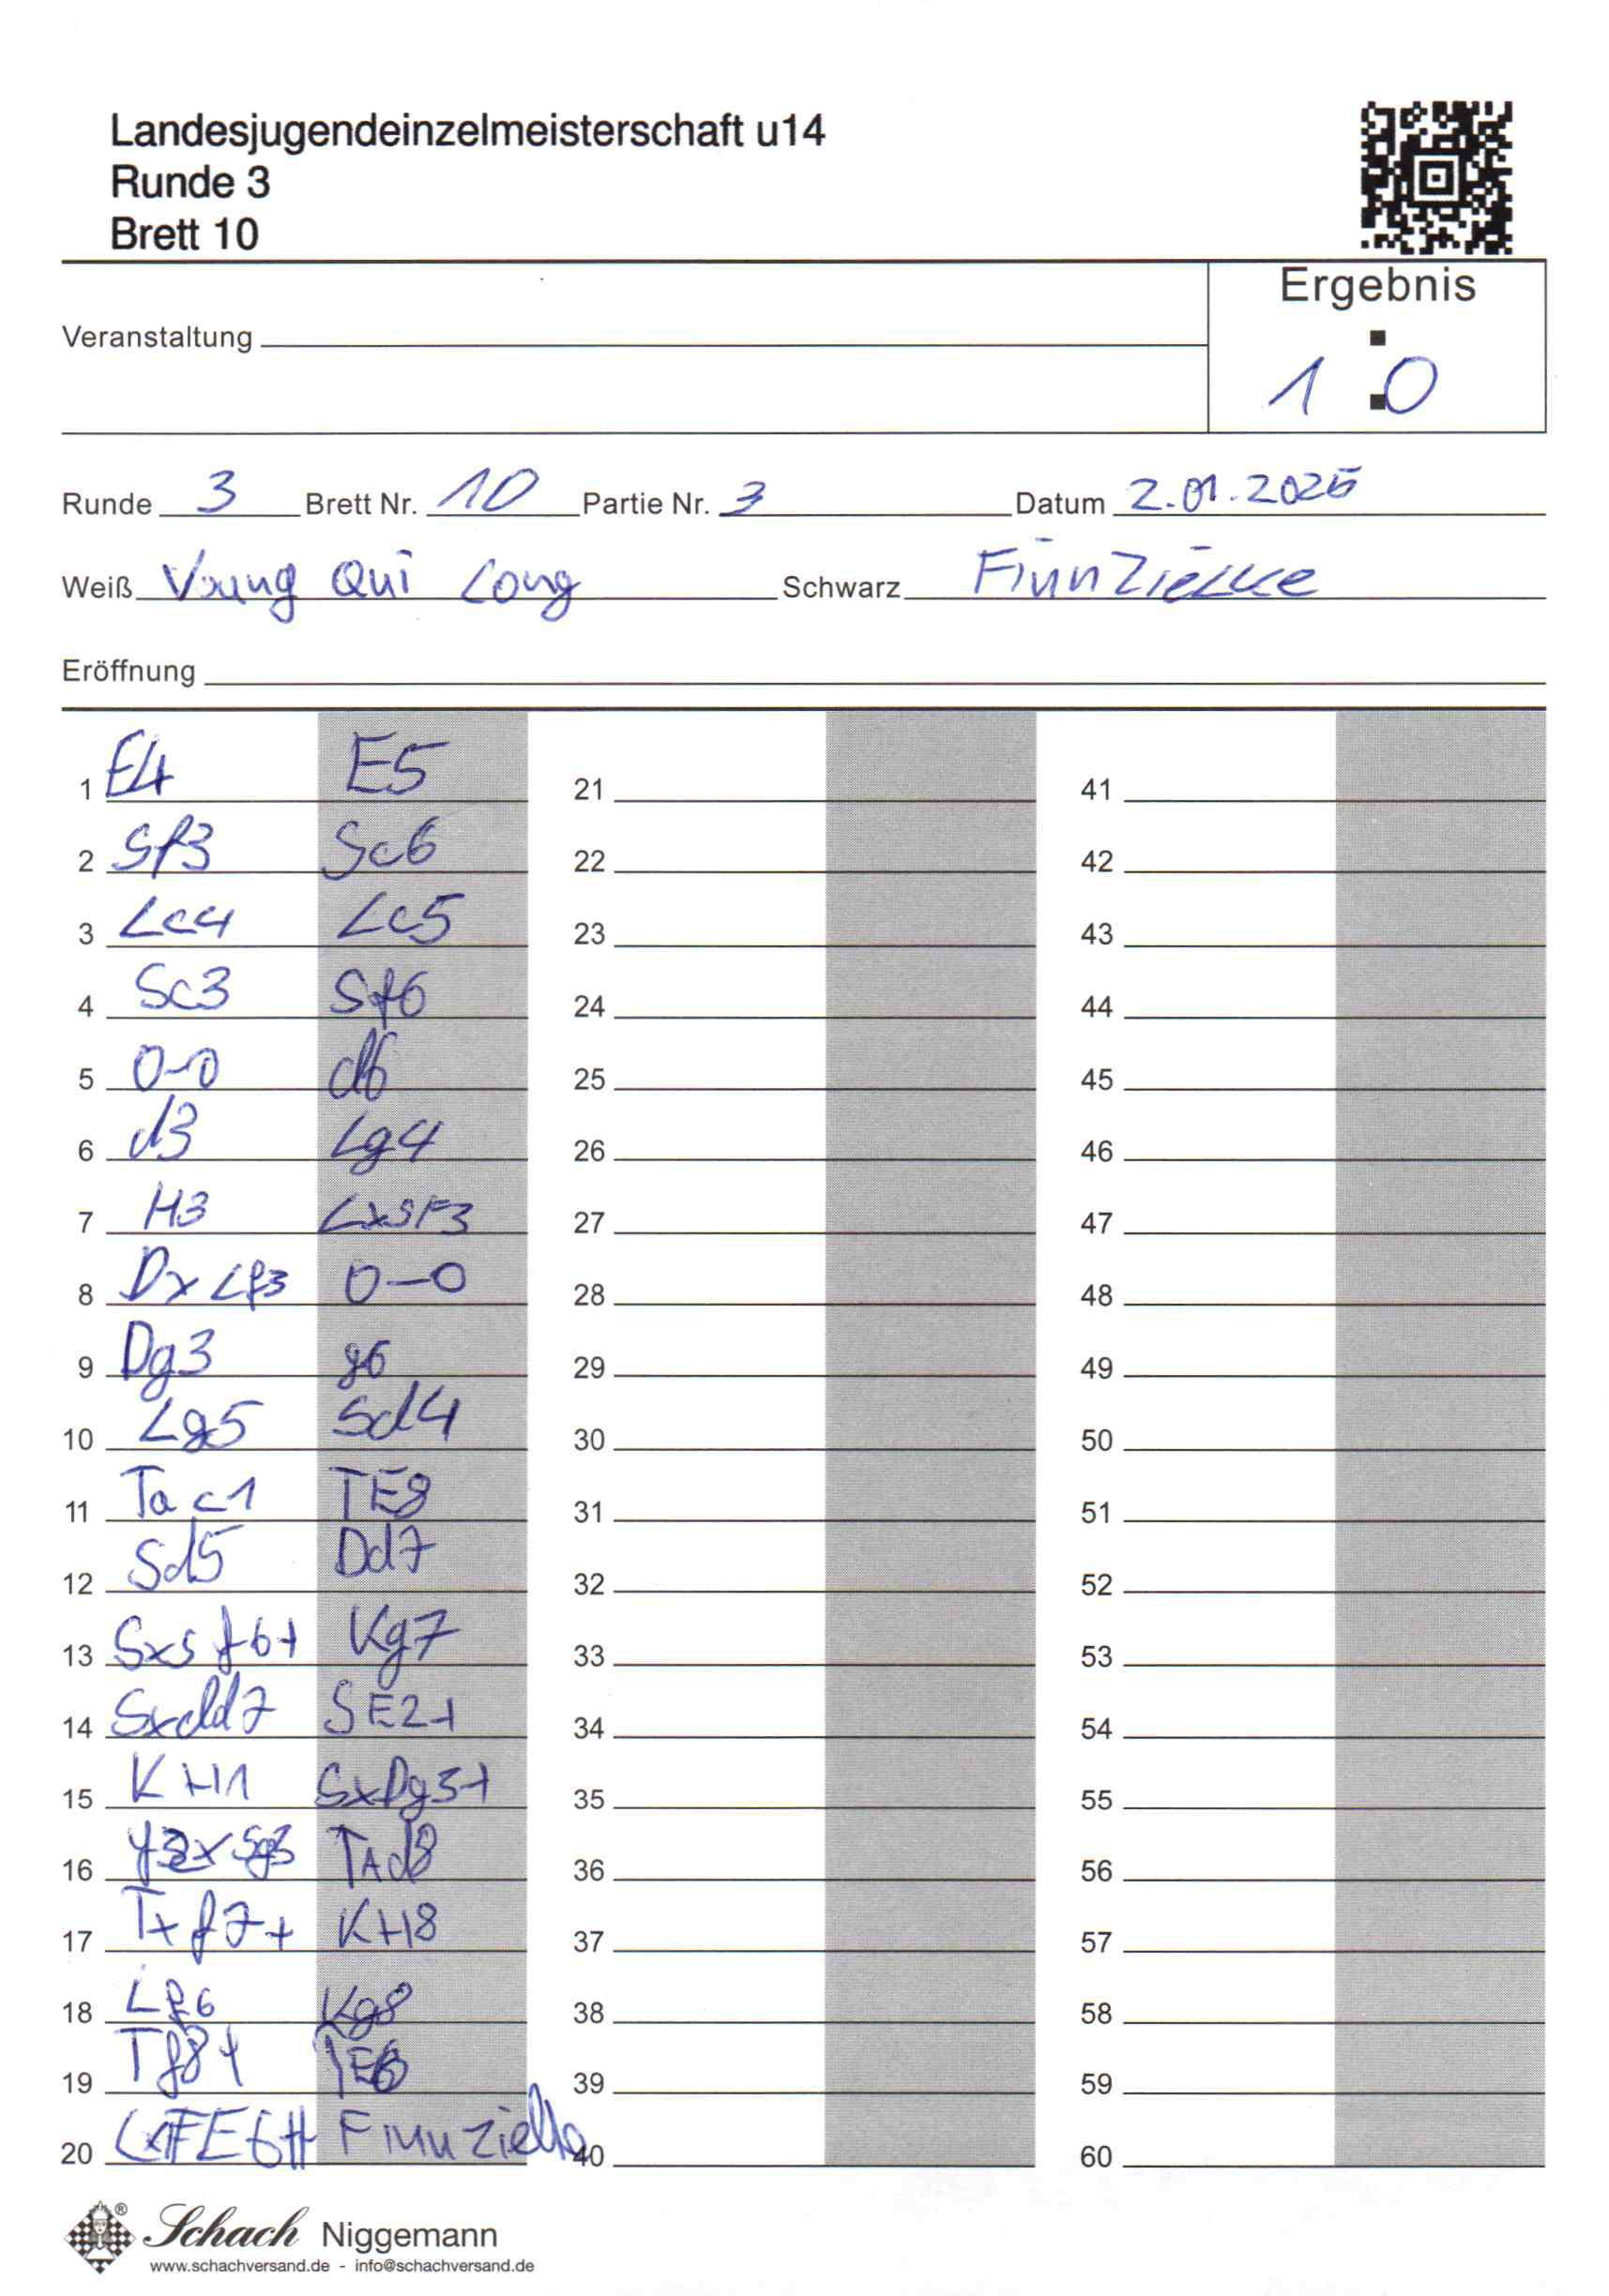 Landesjugendeinzelmeisterschaft u14
Runde 3
Brett 10
Ergebnis
Veranstaltung
1 : 0
Runde 3 Brett Nr. 10 Partie Nr. 3 Datum 2.01.2025
Weiß Voung Qui Long Schwarz Finn Zielke
Eröffnung
1 E4 E5 21 41
2 Sf3 Sc6 22 42
3 Lc4 Lc5 23 43
4 Sc3 Sf6 24 44
5 0-0 d6 25 45
6 d3 Lg4 26 46
7 H3 LxSF3 27 47
8 DxLf3 0-0 28 48
9 Dg3 g6 29 49
10 Lg5 Sd4 30 50
11 Tac1 TE8 31 51
12 Sd5 Dd7 32 52
13 SxSf6+ Kg7 33 53
14 Sxdd7 SE2+ 34 54
15 KH1 SxDg3+ 35 55
16 f2xSg3 TAd8 36 56
17 Txf7+ KH8 37 57
18 Lf6 Kg8 38 58
19 Tg8+ TE6 39 59
20 E6# Finn Zielke 40 60
Schach Niggemann
www.schachversand.de - info@schachversand.de